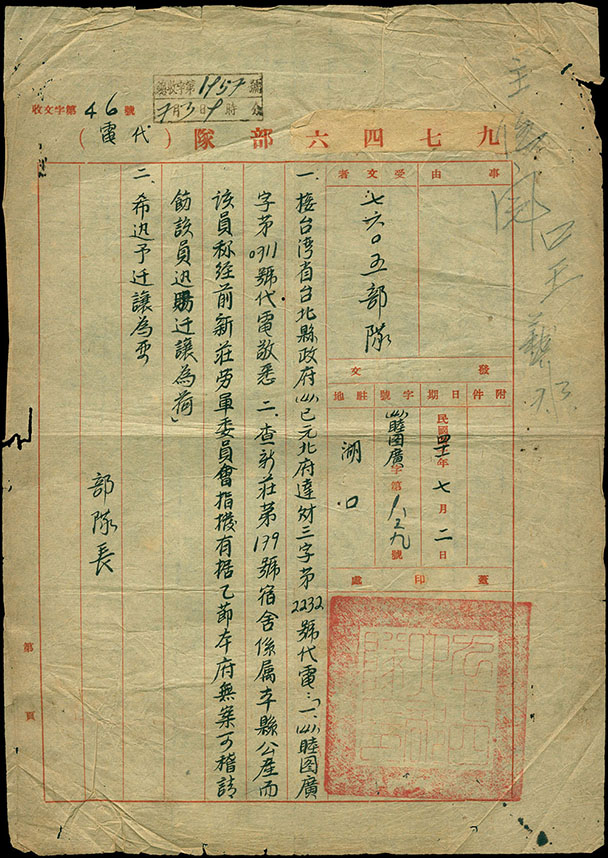 收文字第46號
總收字第1957號
7月3日9時 分
九七四六部隊（代電）
事由
受文者
七六〇五部隊
發文
附件
日期
民國四十一年七月二日
字號
睦圖廣字第 號
駐地
湖口
蓋印處
一、接台湾省台北縣政府(41)已元北府達財三字第2232號代電：「一、(41)睦图廣
字第0311號代電敬悉 二、查新莊第179號宿舍係属本縣公產而
該員称経前新莊勞軍委員會指撥有据乙節本府無案可稽請
飭該員迅賜迁讓為荷」
二、希迅予迁讓為要
部隊長
第 頁